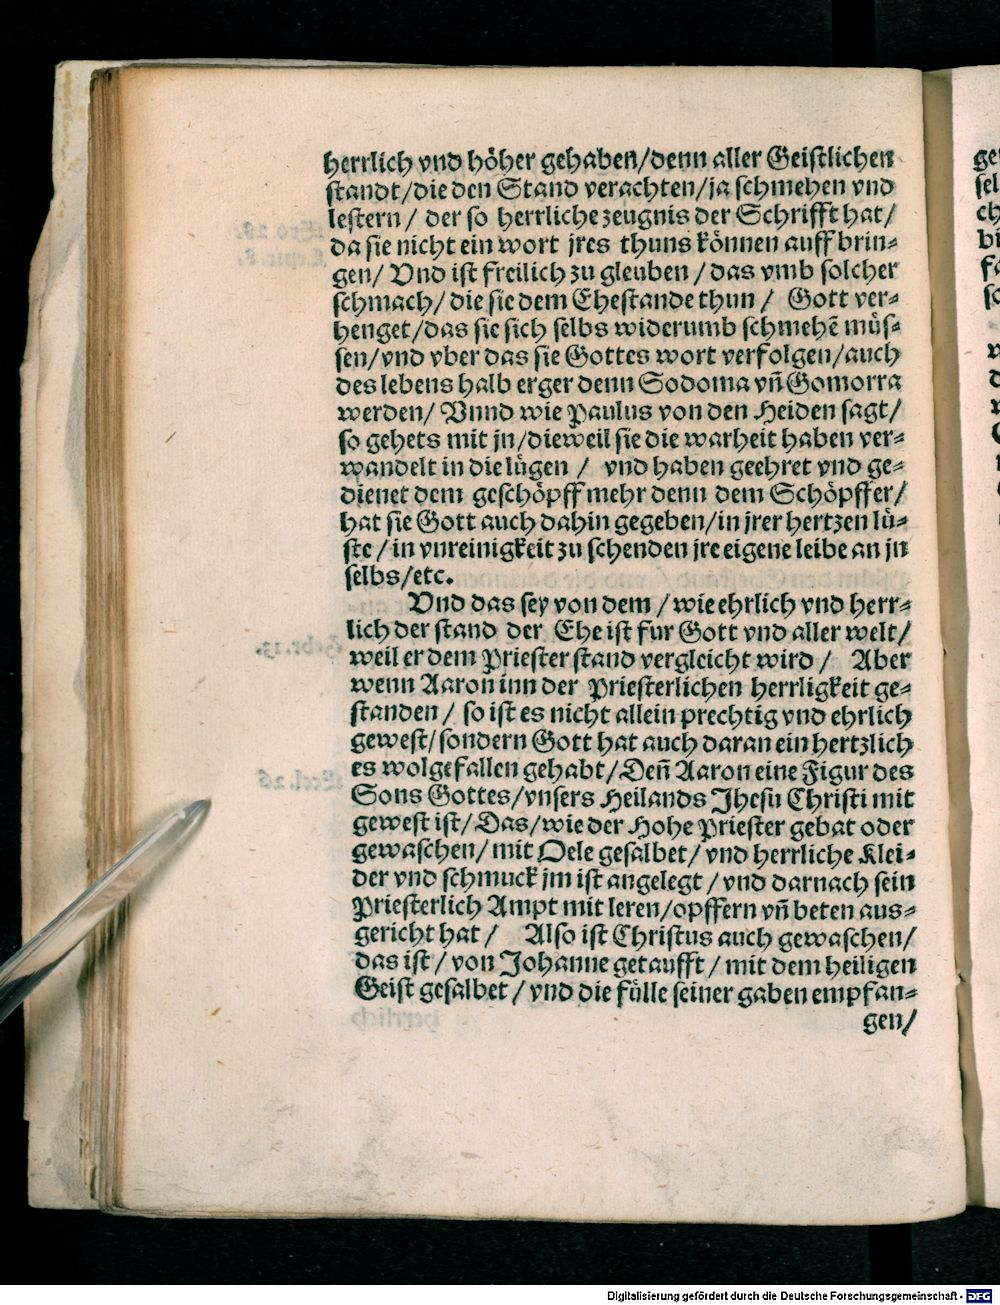 herrlich vnd höher gehaben/denn aller Geistlichen
standt/die den Stand verachten/ja schmehen vnd
lestern/ der so herrliche zeugnis der Schrifft hat/
da sie nicht ein wort jres thuns können auff brin-
gen/ Vnd ist freilich zu gleuben/das vmb solcher
schmach/die sie dem Ehestande thun/ Gott ver-
henget/das sie sich selbs widerumb schmehē müs-
sen/vnd vber das sie Gottes wort verfolgen/auch
des lebens halb erger denn Sodoma vñ Gomorra
werden/ Vnnd wie Paulus von den Heiden sagt/
so gehets mit jn/dieweil sie die warheit haben ver-
wandelt in die lügen/ vnd haben geehret vnd ge-
dienet dem geschöpff mehr denn dem Schöpffer/
hat sie Gott auch dahin gegeben/in jrer hertzen lü-
ste/in vnreinigkeit zu schenden jre eigene leibe an jn
selbs/etc.
Vnd das sey von dem/wie ehrlich vnd herr-
lich der stand der Ehe ist fur Gott vnd aller welt/
weil er dem Priester stand vergleicht wird/ Aber
wenn Aaron inn der Priesterlichen herrligkeit ge-
standen/ so ist es nicht allein prechtig vnd ehrlich
gewest/sondern Gott hat auch daran ein hertzlich
es wolgefallen gehabt/Deñ Aaron eine Figur des
Sons Gottes/vnsers Heilands Jhesu Christi mit
gewest ist/Das/wie der Hohe Priester gebat oder
gewaschen/mit Oele gesalbet/vnd herrliche Klei-
der vnd schmuck jm ist angelegt/vnd darnach sein
Priesterlich Ampt mit leren/opffern vñ beten aus-
gericht hat/ Also ist Christus auch gewaschen/
das ist/von Johanne getaufft/mit dem heiligen
Geist gesalbet/vnd die fülle seiner gaben empfan-
gen/
Digitalisierung gefördert durch die Deutsche Forschungsgemeinschaft - DFG